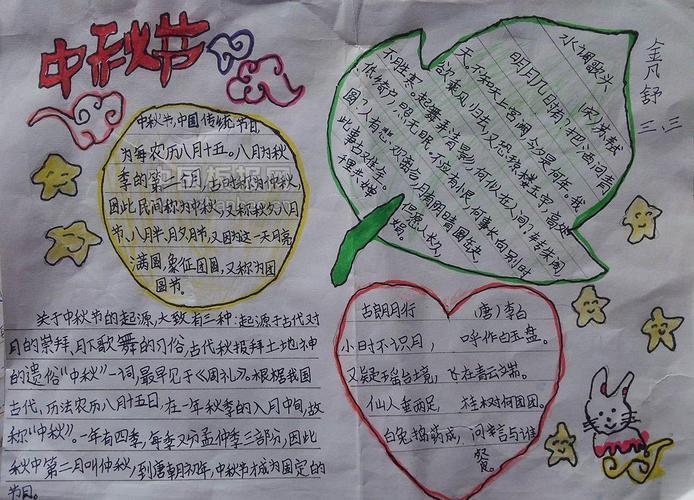 中秋节
中秋节,中国传统节日,
为每农历八月十五。八月为秋
季的第二个月,古时称为仲秋,
因此民间称为中秋,又称秋夕、八月
节、八月半、月夕、月节,又因为这一天月亮
满圆,象征团圆,又称为团
圆节。
板报网
水调歌头
(宋)苏轼
明月几时有?把酒问青
天,不知天上宫阙,今夕是何年。我
欲乘风归去,又恐琼楼玉宇,高处
不胜寒。起舞弄清影,何似在人间?转朱阁
低绮户,照无眠。不应有恨,何事长向别时
圆?人有悲欢离合,月有阴晴圆缺,
此事古难全。但愿人长久,
千里共婵
娟。
金凡舒
三、三
关于中秋节的起源,大致有三种:起源于古代对
月的崇拜、月下歌舞的习俗,古代秋报拜土地神
的遗俗“中秋”一词,最早见于《周礼》。根据我国
古代,历法农历八月十五日,在一年秋季的八月中旬,故
称“中秋”。一年有四季,每季又分孟仲季三部分,因此
秋中第二月叫仲秋,到唐朝初年,中秋节才成为固定的
节日。
古朗月行 (唐)李白
小时不识月, 呼作白玉盘。
又疑瑶台境, 飞在青云端。
仙人垂两足, 桂树何团团。
白兔捣药成, 问言与谁
餐。